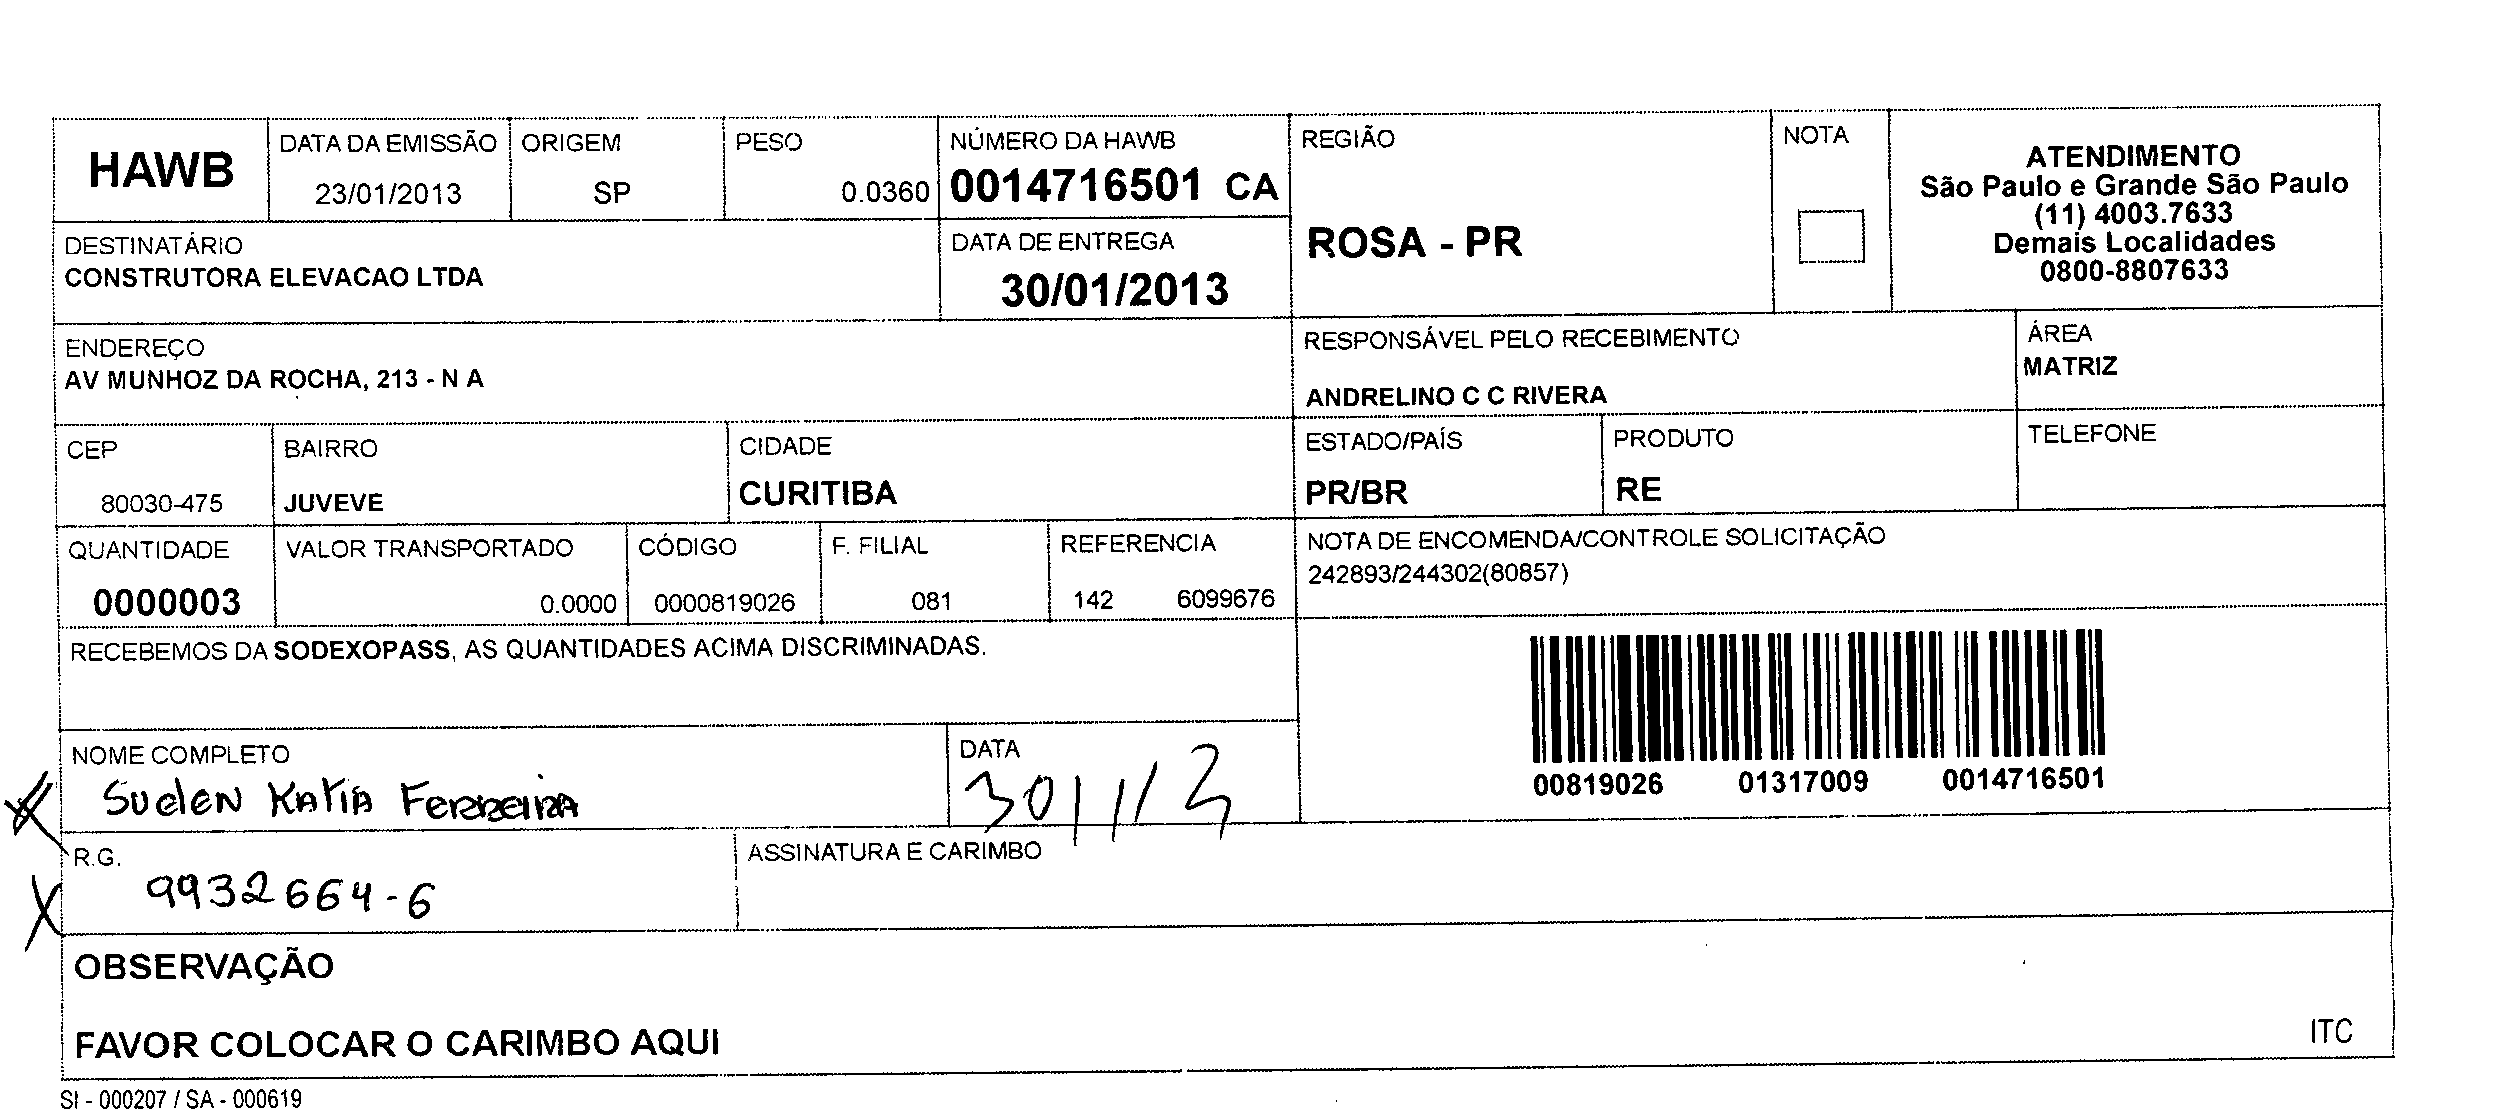 HAWB
DATA DA EMISSÃO
23/01/2013
ORIGEM
SP
PESO
0.0360
NÚMERO DA HAWB
0014716501 CA
REGIÃO
ROSA - PR
NOTA
ATENDIMENTO
São Paulo e Grande São Paulo
(11) 4003.7633
Demais Localidades
0800-8807633
DESTINATÁRIO
CONSTRUTORA ELEVACAO LTDA
DATA DE ENTREGA
30/01/2013
ENDEREÇO
AV MUNHOZ DA ROCHA, 213 - N A
RESPONSÁVEL PELO RECEBIMENTO
ANDRELINO C C RIVERA
ÁREA
MATRIZ
CEP
80030-475
BAIRRO
JUVEVE
CIDADE
CURITIBA
ESTADO/PAÍS
PR/BR
PRODUTO
RE
TELEFONE
QUANTIDADE
0000003
VALOR TRANSPORTADO
0.0000
CÓDIGO
0000819026
F. FILIAL
081
REFERENCIA
142 6099676
NOTA DE ENCOMENDA/CONTROLE SOLICITAÇÃO
242893/244302(80857)
RECEBEMOS DA SODEXOPASS, AS QUANTIDADES ACIMA DISCRIMINADAS.
00819026 01317009 0014716501
NOME COMPLETO
Suelen Katia Ferreira
DATA
30/1/13
R.G.
9932664-6
ASSINATURA E CARIMBO
OBSERVAÇÃO
FAVOR COLOCAR O CARIMBO AQUI
ITC
SI - 000207 / SA - 000619